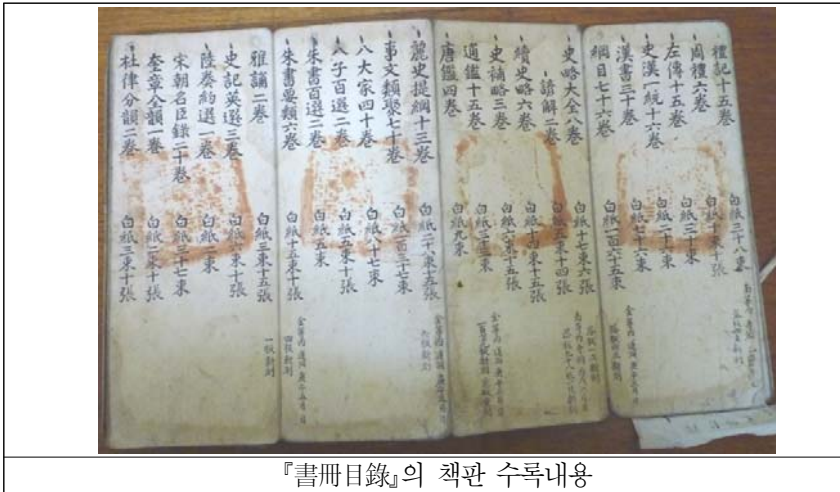 禮記十五卷 白紙三十八束
周禮六卷 白紙十束十張
左傳十五卷 白紙三十束
史漢一統十六卷 白紙二十束
漢書三十卷 白紙七十六束
綱目七十六卷 白紙一百六十五束
史略大全八卷 白紙十七束六張
諺解二卷 白紙束十四張
續史略六卷 白紙十四束十五張
史補略三卷 白紙六束十五張
通鑑十五卷 白紙
唐鑑四卷 白紙九束
麗史提綱十三卷 白紙二十束十五張
事文類聚七十卷 白紙一百三十七束
八大家四十卷 白紙八十七束
八子百選二卷 白紙五束十張
朱書百選二卷 白紙五束
朱書要類六卷 白紙十五束十張
雅誦二卷 白紙三束十五張
一板新刻
史記英選三卷 白紙六束十張
陸奏約選一卷 白紙束
宋朝名臣錄二十卷 白紙三十七束
奎章全韻一卷 白紙二束十張
杜律分韻二卷 白紙三束十張
『書冊目錄』의 책판 수록내용